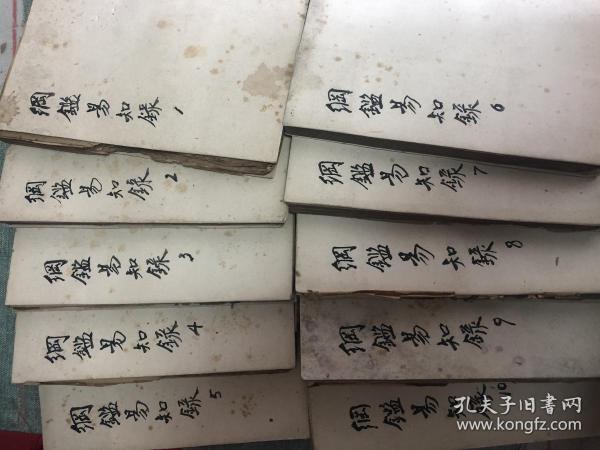 綱鑑易知錄 1
綱鑑易知錄 2
綱鑑易知錄 3
綱鑑易知錄 4
綱鑑易知錄 5
綱鑑易知錄 6
綱鑑易知錄 7
綱鑑易知錄 8
綱鑑易知錄 9
綱鑑易知錄 10
孔夫子旧书网
www.kongfz.com